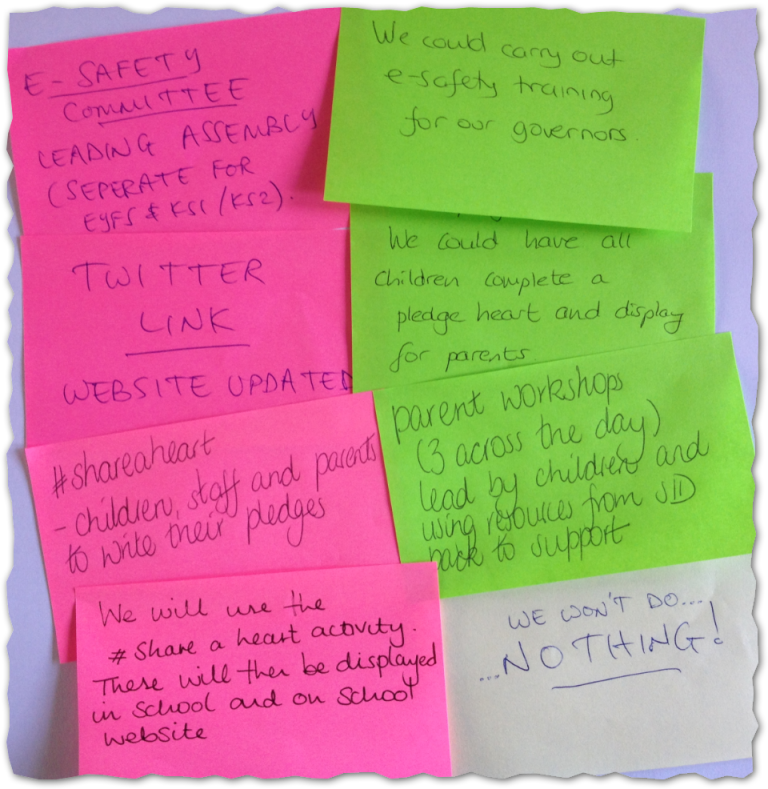 E-SAFETY
COMMITTEE
LEADING ASSEMBLY
(SEPERATE FOR
EYFS & KS1/KS2).
We could carry out
e-safety training
for our governors.
TWITTER
LINK
WEBSITE UPDATED
We could have all
children complete a
pledge heart and display
for parents.
#shareaheart
- children, staff and parents
to write their pledges
parent workshops
(3 across the day)
lead by children and
using resources from SID
pack to support
We will use the
# Share a heart activity.
These will then be displayed
in school and on school
website
WE WON'T DO...
...NOTHING!